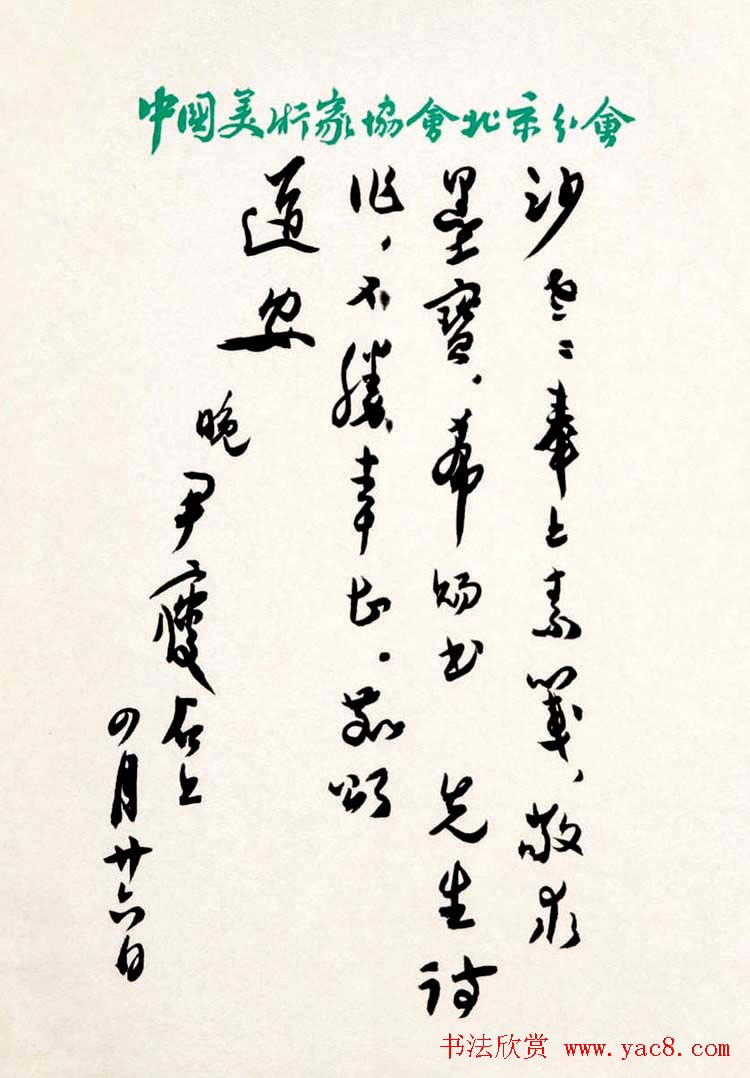 中國美術家協會北京分會
沙老：奉上素箋，敬求
墨寶，希賜书 先生诗
作，不勝幸甚。敬頌
道安
晚尹瘦石上
四月廿六日
书法欣赏 www.yac8.com